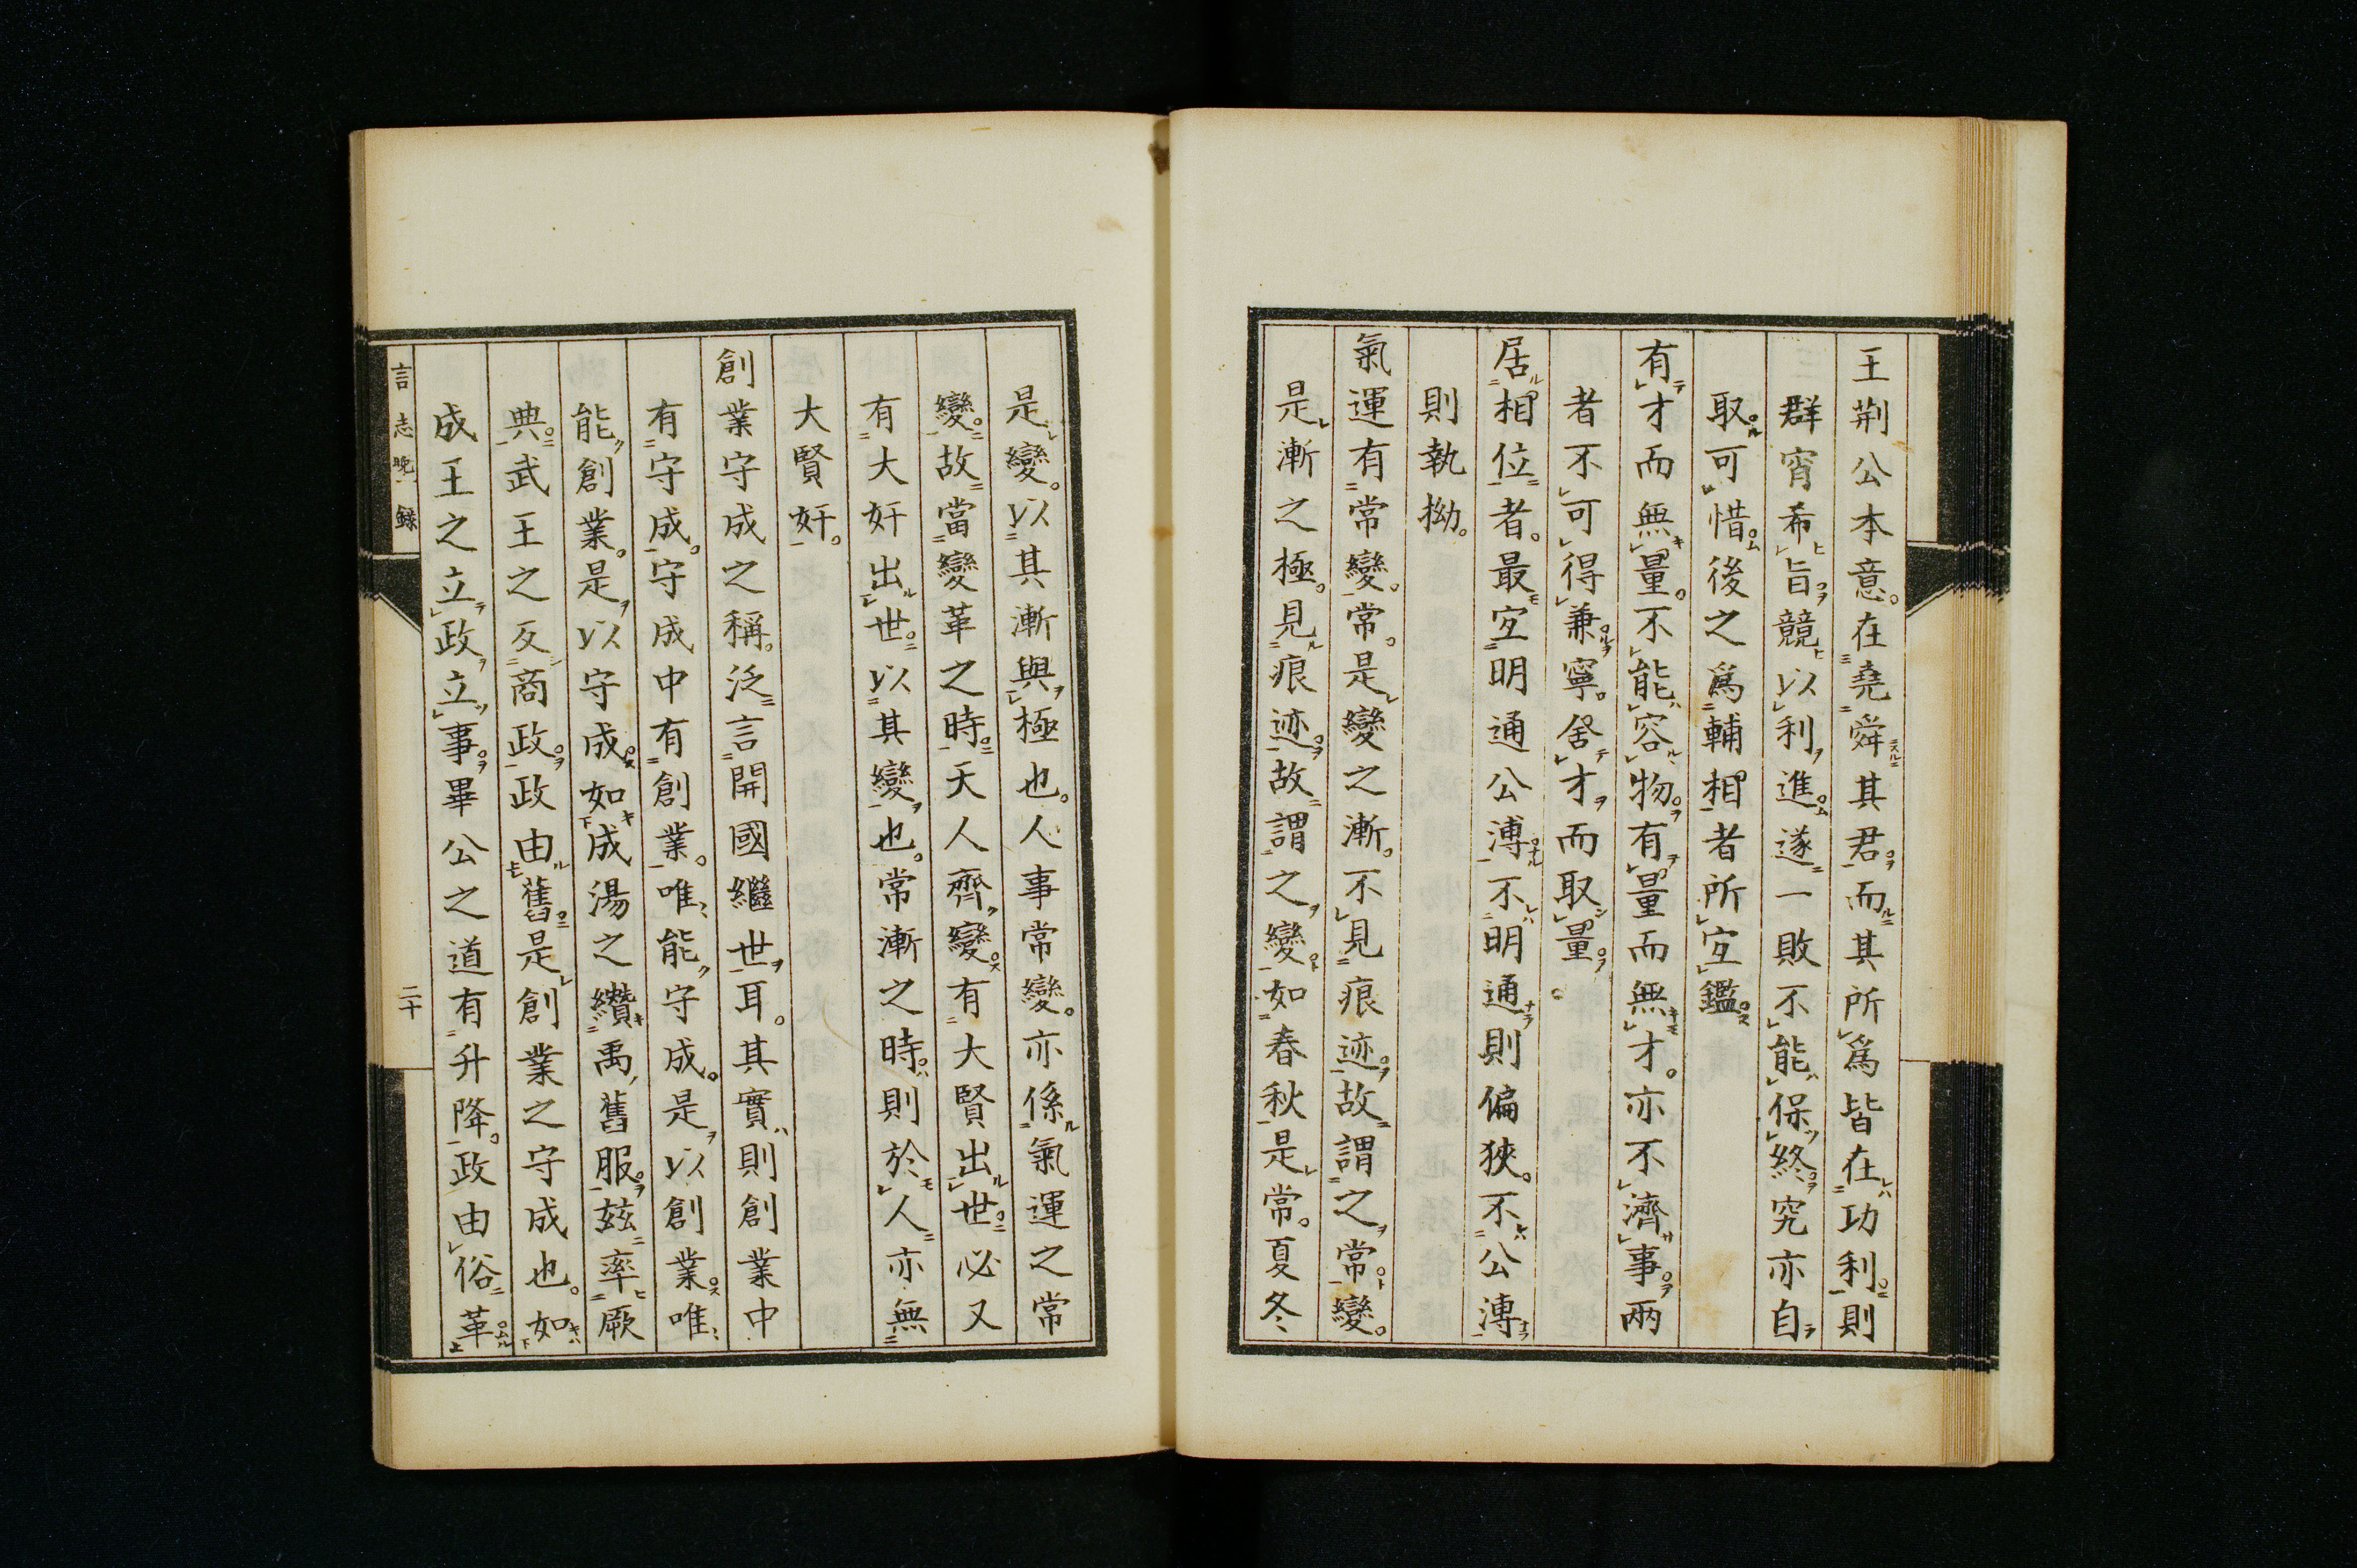 王荆公本意。在堯舜其君而其所爲皆在功利則
群宵希旨競以利進遂一敗不能保終究亦自
取可惜後之爲輔相者所宐鑑
有才而無量。不能容物。有量而無才。亦不濟事。兩
者不可得兼寧。舍才而取量。
居相位者。最宐明通公溥不明通則偏狹。不公溥
則執拗。
氣運有常變。常。是變之漸。不見痕迹。故謂之常變。
是漸之極。見痕迹故謂之變如春秋是常。夏冬
是變。以其漸與極也。人事常變。亦係氣運之常
變。故當變革之時。天人齊變。有大賢出世。必又
有大奸出世。以其變也。常漸之時。則於人亦無
大賢奸。
創業守成之稱。泛言開國繼世耳。其實則創業中
有守成。守成中有創業。唯能守成。是以創業。唯
能創業。是以守成。如成湯之纘禹舊服。玆率厥
典。武王之反商政。政由舊。是創業之守成也。如
成王之立政立事。畢公之道有升降。政由俗革
言志晚錄
二十